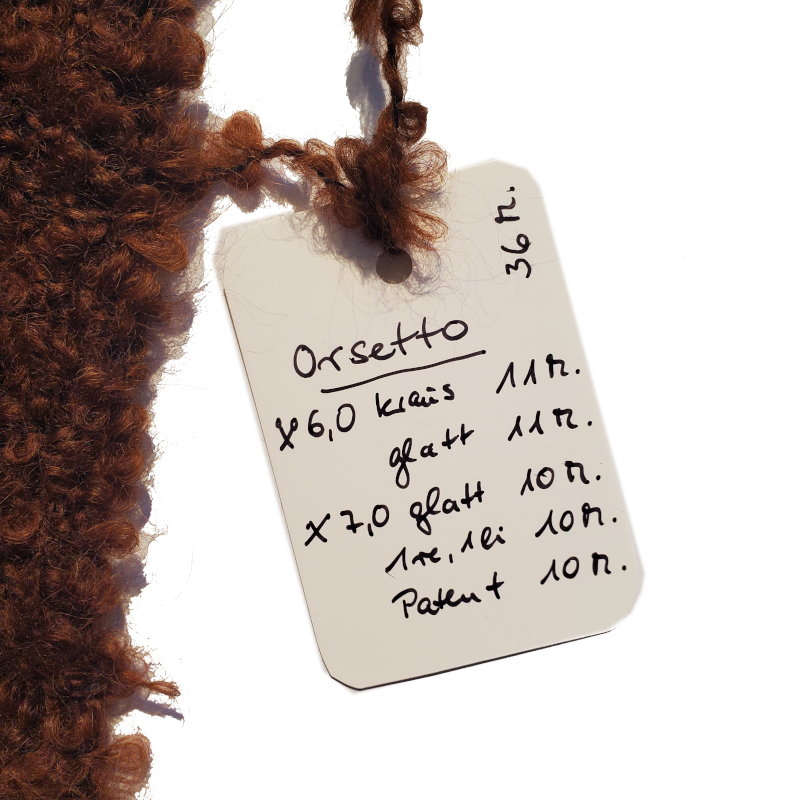 36 M.
Orsetto
X 6,0 kraus 11 M.
glatt 11 M.
X 7,0 glatt 10 M.
1re, 1li 10 M.
Patent 10 M.